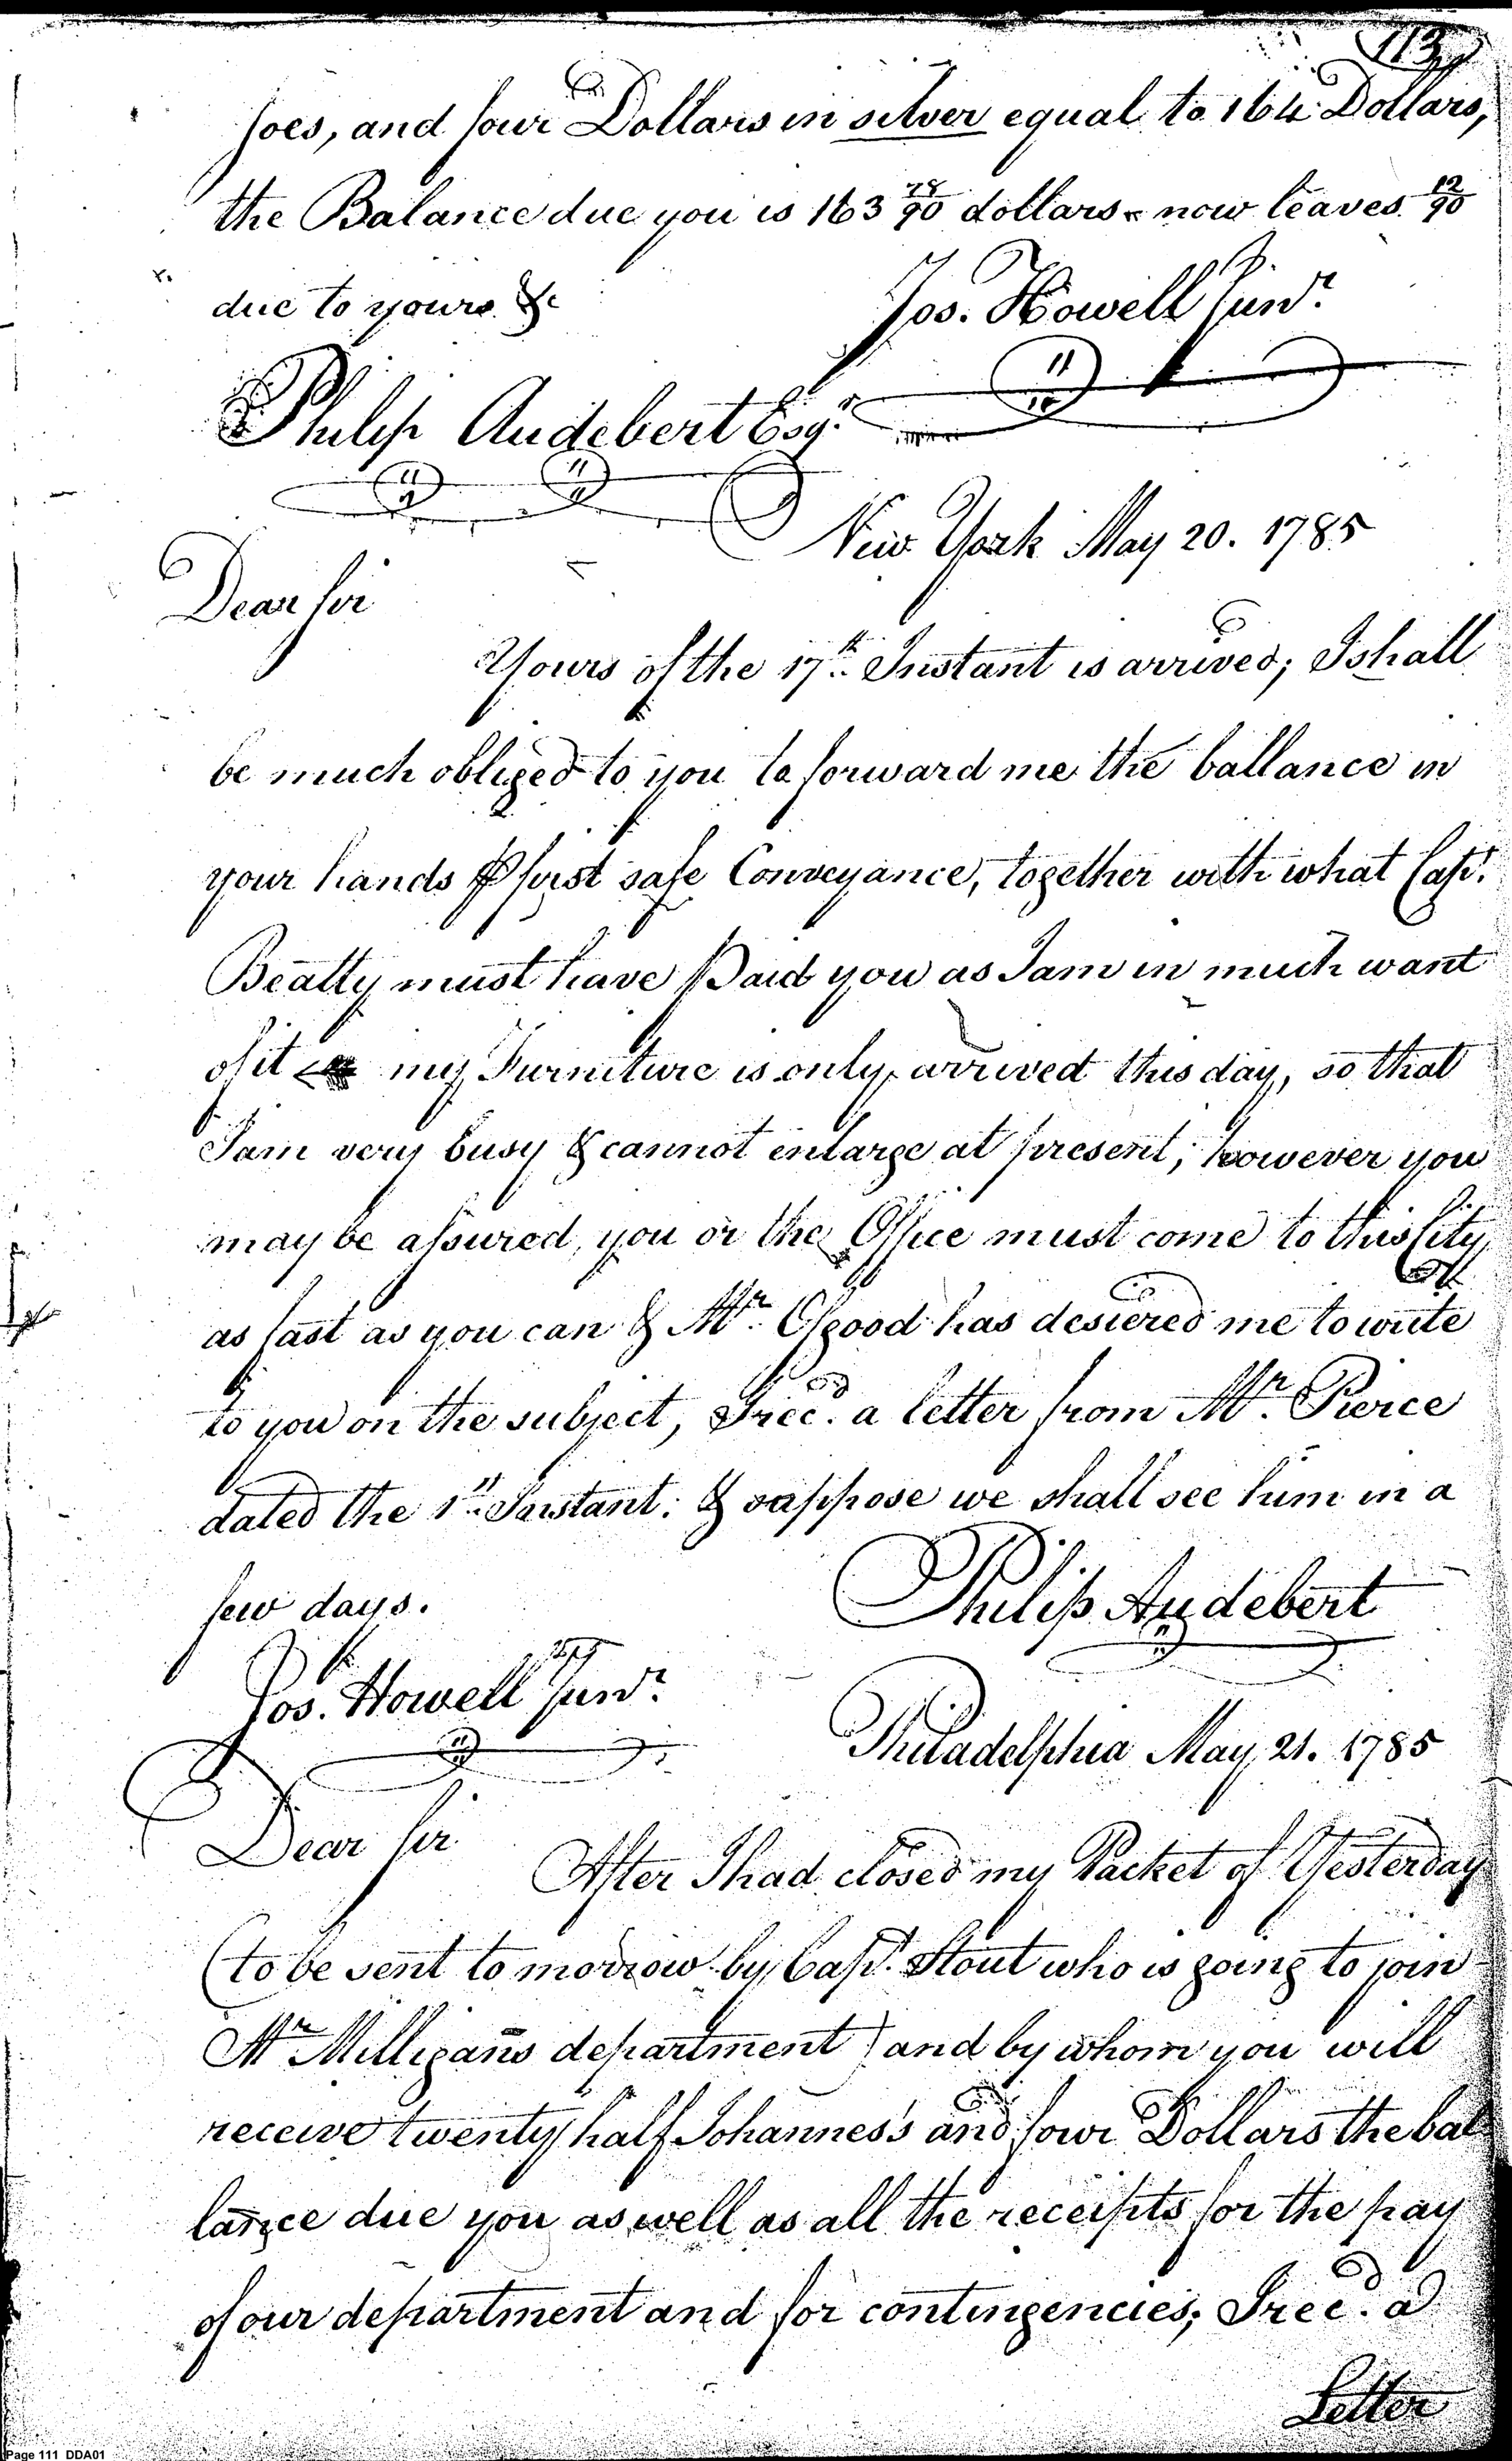 113
Joes, and four Dollars in silver equal to 164 Dollars,
the Balance due you is 163 78/90 dollars - now leaves 12/90
due to yours &c
Jos. Howell Junr.
Philip Audebert Esqr.
New York May 20. 1785
Dear Sir
Yours of the 17th Instant is arrived; I shall
be much obliged to you to forward me the ballance in
your hands ⅌ first safe Conveyance, together with what Capt.
Beatty must have Paid you as I am in much want
of it my Furniture is only arrived this day, so that
I am very busy & cannot enlarge at present; however you
may be assured, you or the Office must come to this City
as fast as you can & Mr. Osgood has desiered me to write
to you on the subject, I rec'd. a letter from Mr. Pierce
dated the 1st Instant: & suppose we shall see him in a
few days.
Philip Audebert
Jos. Howell Junr.
Philadelphia May 21. 1785
Dear Sir
After I had closed my Packet of Yesterday
(to be sent to morrow by Capt. Stout who is going to join
Mr Milligans department) and by whom you will
receive twenty half Johannes's and four Dollars the bal
lance due you as well as all the receipts for the pay
of our department and for contingencies; I rec'd. a
Letter
Page 111 DDA01